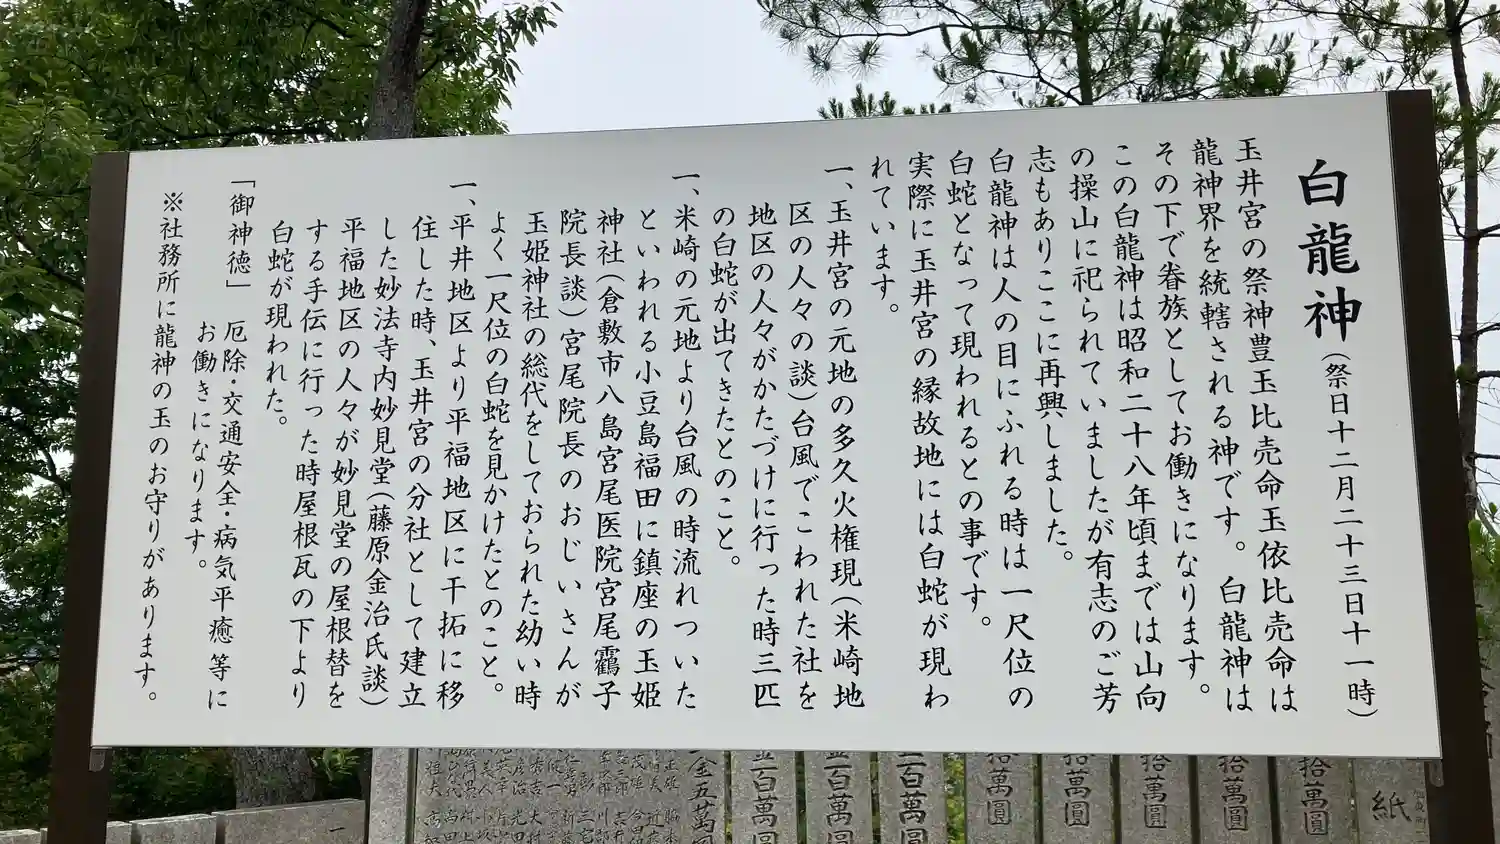 白龍神（祭日十二月二十三日十一時）
玉井宮の祭神豊玉比売命玉依比売命は
龍神界を統轄される神です。白龍神は
その下で眷族としてお働きになります。
この白龍神は昭和二十八年頃までは山向
の操山に祀られていましたが有志のご芳
志もありここに再興しました。
白龍神は人の目にふれる時は一尺位の
白蛇となって現われるとの事です。
実際に玉井宮の縁故地には白蛇が現わ
れています。
一、玉井宮の元地の多久火権現（米崎地
区の人々の談）台風でこわれた社を
地区の人々がかたづけに行った時三匹
の白蛇が出てきたとのこと。
一、米崎の元地より台風の時流れついた
といわれる小豆島福田に鎮座の玉姫
神社（倉敷市八島宮尾医院宮尾靍子
院長談）宮尾院長のおじいさんが
玉姫神社の総代をしておられた幼い時
よく一尺位の白蛇を見かけたとのこと。
一、平井地区より平福地区に干拓に移
住した時、玉井宮の分社として建立
した妙法寺内妙見堂（藤原金治氏談）
平福地区の人々が妙見堂の屋根替を
する手伝に行った時屋根瓦の下より
白蛇が現われた。
「御神徳」 厄除・交通安全・病気平癒等に
お働きになります。
※社務所に龍神の玉のお守りがあります。
紙
拾萬圓
拾萬圓
拾萬圓
拾萬圓
拾萬圓
百萬圓
百萬圓
百萬圓
金五萬